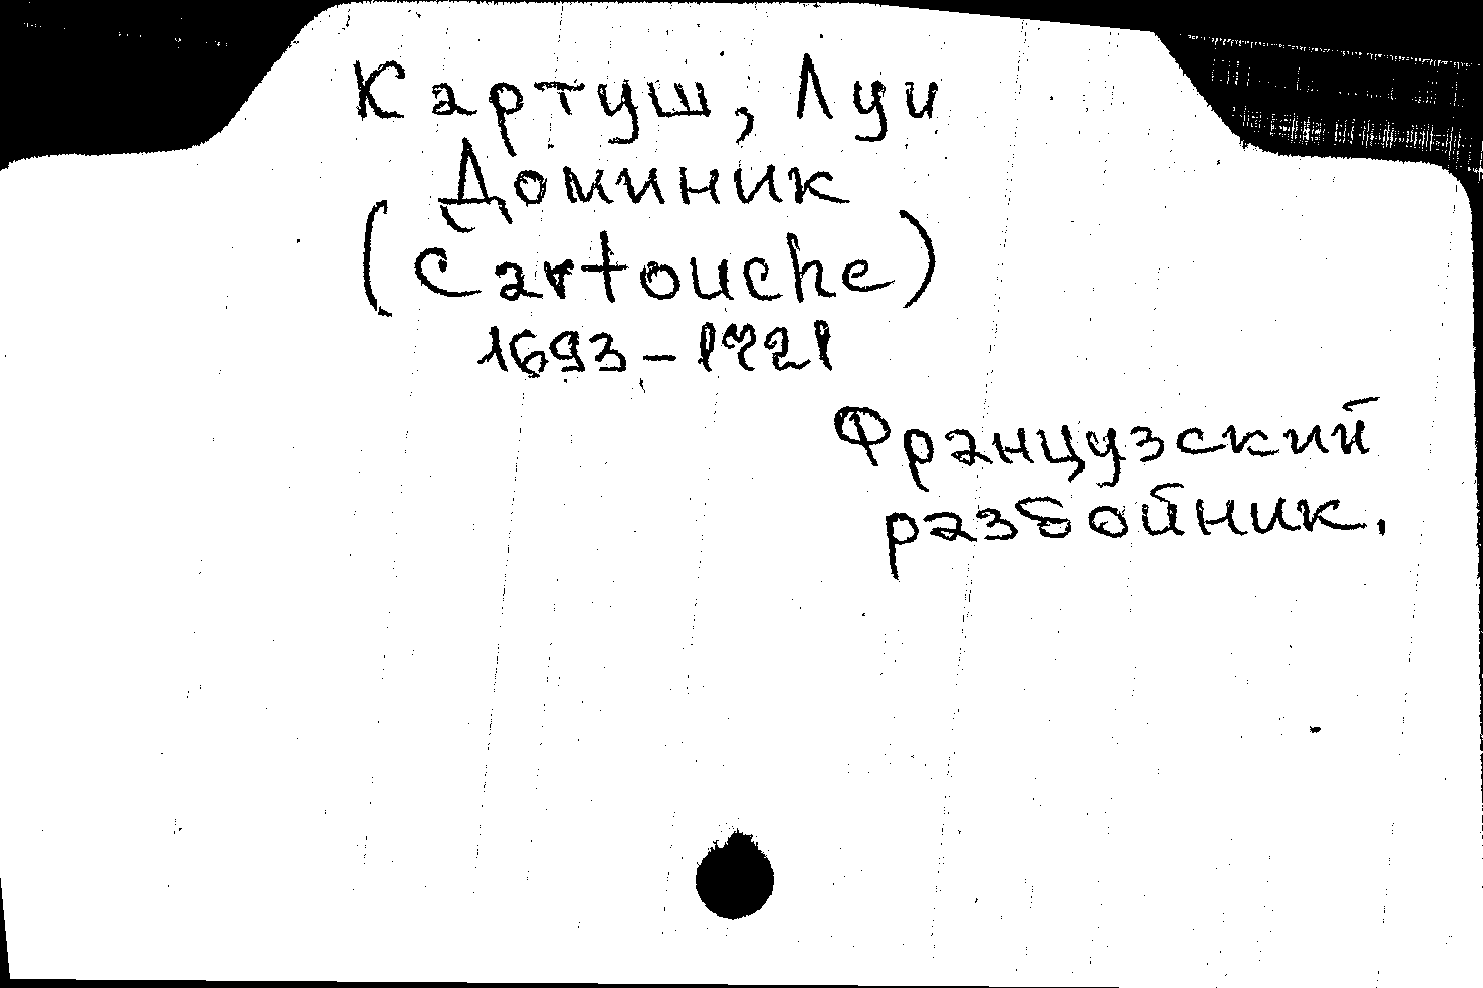 Картуш, Луи
Доминик
(Cartouche)
1693-1721
Французский
разбойник.